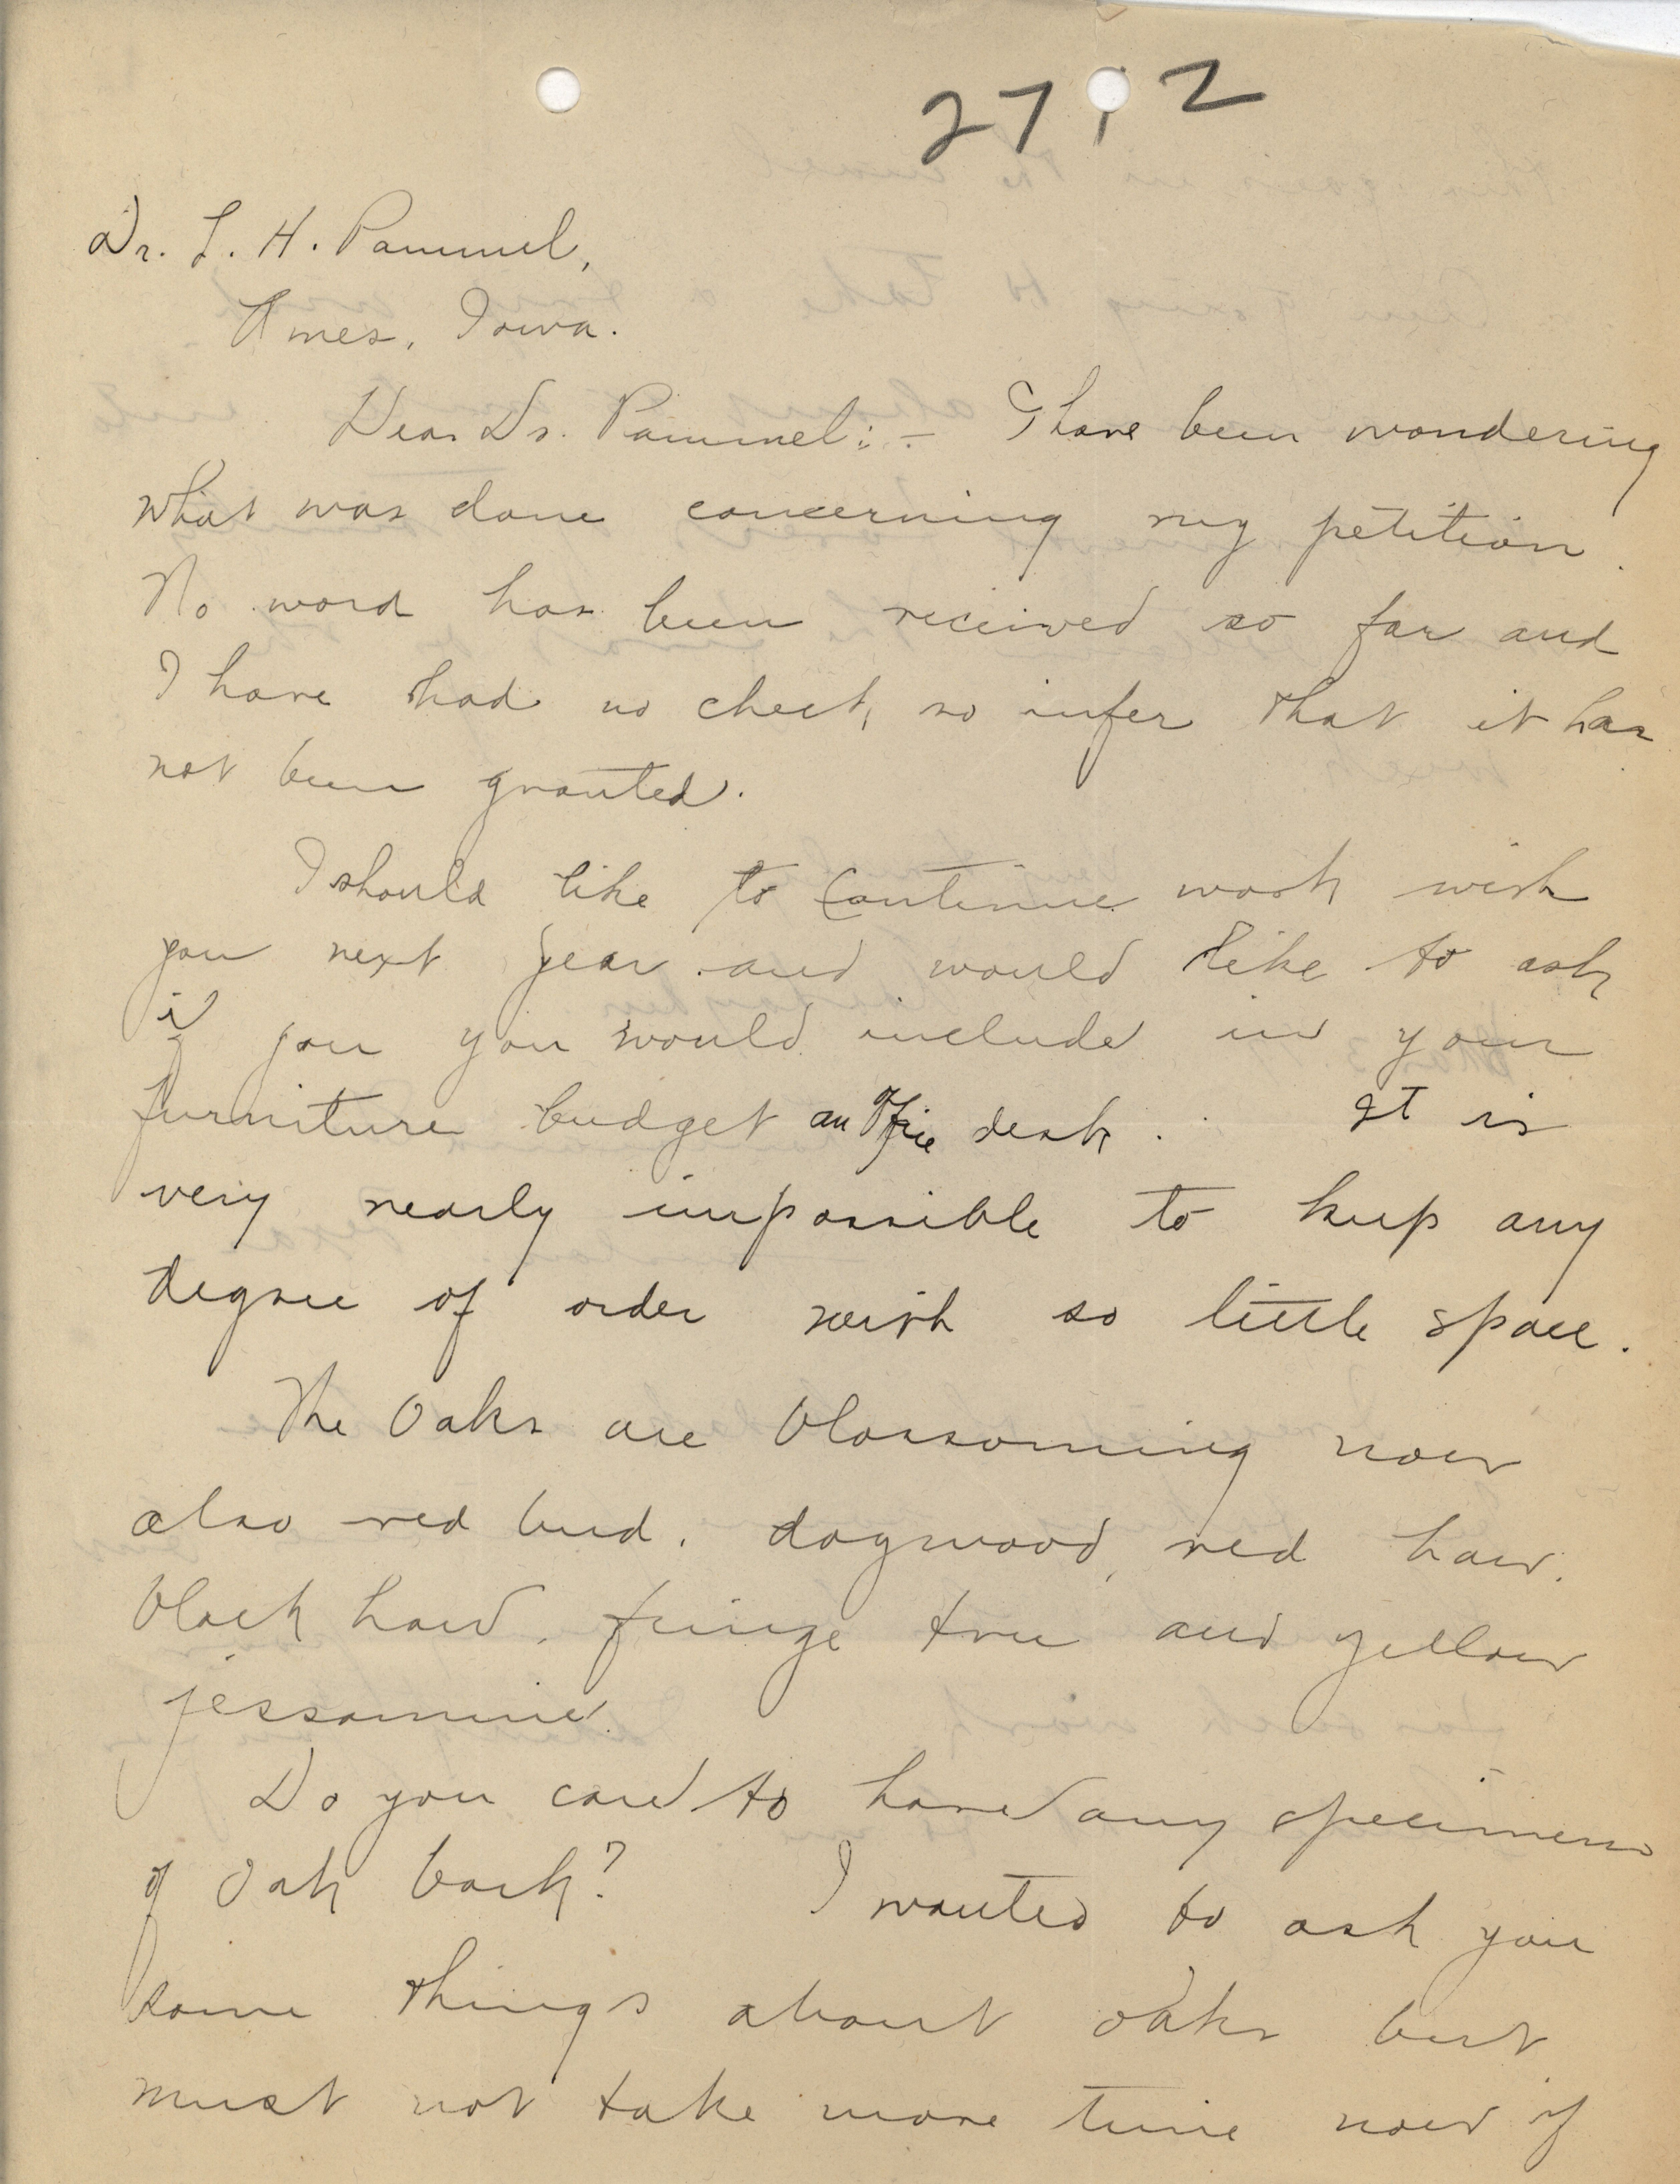 27 2
Dr. L. H. Pammel,
Ames, Iowa.
Dear Dr. Pammel:- I have been wondering
what was done concerning my petition.
No word has been received so far and
I have had no check, so infer that it has
not been granted.
I should like to continue work with
you next year and would like to ask
if you you would include in your
furniture budget an office desk. It is
very nearly impossible to keep any
degree of order with so little space.
The Oaks are blossoming now
also red bud, dogwood, red haw,
black haw, fringe tree and yellow
jessamine.
Do you care to have any specimens
of Oak bark? I wanted to ask you
some things about oaks but
must not take more time now if